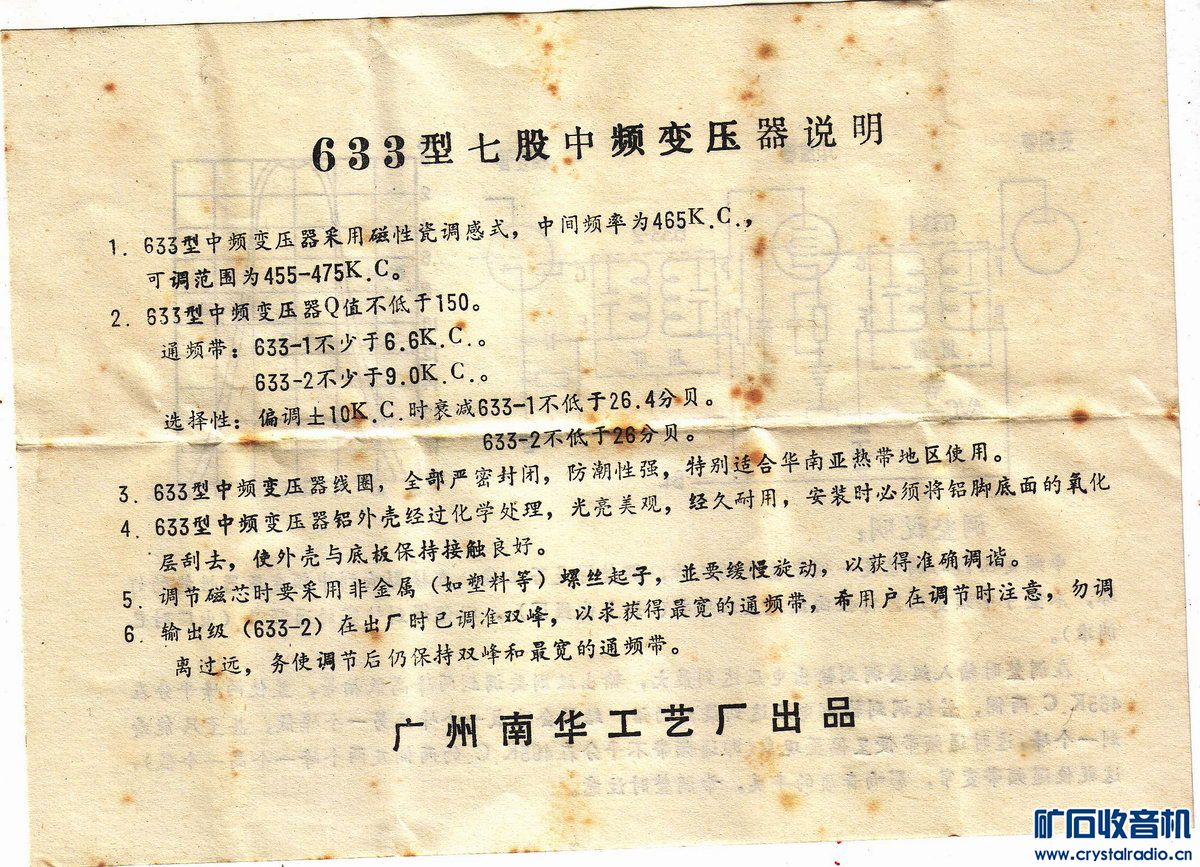 633型七股中频变压器说明
1. 633型中频变压器采用磁性瓷调感式，中间频率为465K.C.，
可调范围为455-475K.C。
2. 633型中频变压器Q值不低于150。
通频带：633-1不少于6.6K.C.。
633-2不少于9.0K.C.。
选择性：偏调±10K.C.时衰减633-1不低于26.4分贝。
633-2不低于26分贝。
3. 633型中频变压器线圈，全部严密封闭，防潮性强，特别适合华南亚热带地区使用。
4. 633型中频变压器铝外壳经过化学处理，光亮美观，经久耐用，安装时必须将铝脚底面的氧化
层刮去，使外壳与底板保持接触良好。
5. 调节磁芯时要采用非金属（如塑料等）螺丝起子，並要缓慢旋动，以获得准确调谐。
6. 输出级（633-2）在出厂时已调准双峰，以求获得最宽的通频带，希用户在调节时注意，勿调
离过远，务使调节后仍保持双峰和最宽的通频带。
广州南华工艺厂出品
矿石收音机
www.crystalradio.cn